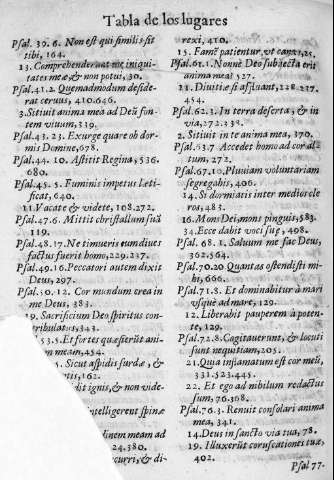 Tabla de los lugares
Psal. 39. 6. Non est qui similis sit
tibi, 164.
13. Comprehenderunt me iniqui-
tates meæ & non potui, 30.
Psal. 41. 2. Quemadmodum deside-
rat ceruus, 410. 646.
3. Sitiuit anima mea ad Deũ fon-
tem viuum, 339.
Psal. 43. 23. Exurge quare ob dor-
mis Domine, 678.
Psal. 44. 10. Astitit Regina, 536.
680.
Psal. 45. 5. Fuminis impetus læti-
ficat, 640.
11. Vacate & videte, 108. 272.
Psal. 47. 6. Mittit christallum suã
119.
Psal. 48. 17. Ne timueris eum diues
factus fuerit homo, 229. 237.
Psal. 49. 16. Peccatori autem dixit
Deus, 297.
Psal. 50. 12. Cor mundum crea in
me Deus, 383.
19. Sacrificium Deo spiritus con-
tribulatus, 343.
53. 5. Et fortes quæsierũt ani-
mam meam, 454.
Sicut aspidis surdæ, &
162.
ignis, & non vide-
intelligerent spinæ
dinem meam ad
24. 380.
curri, & di-
rexi, 410.
15. Famẽ patientur, vt canes, 25.
Psal. 61. 1. Nonne Deo subjecta erit
anima mea? 527.
11. Diuitiæ si affluant, 128. 217.
454.
Psal. 62. 3. In terra deserta, & in
via, 272. 338.
2. Sitiuit in te anima mea, 370.
Psal. 63. 7. Accedet homo ad cor al-
tum, 272.
Psal. 67. 10. Pluuiam voluntariam
segregabis, 406.
14. Si dormiatis inter medios cle-
ros, 483.
16. Mons Dei, mons pinguis, 583.
34. Ecce dabit voci suę, 498.
Psal. 68. 1. Saluum me fac Deus,
362. 564.
Psal. 70. 20 Quantas ostendisti mi-
hi, 666.
Psal. 71. 8. Et dominabitur à mari
vsque ad mare, 129.
12. Liberabit pauperem à poten-
te, 129.
Psal. 72. 8. Cogitauerunt, & locuti
sunt nequitiam, 205.
21. Quia inflamatum est cor meũ,
331. 523. 445.
22. Et ego ad nihilum redactus
sum, 76. 308.
Psal. 76. 3. Renuit consolari anima
mea, 341.
14. Deus in sancto via tua, 78.
19. Illuxerũt coruscationes tuæ,
402.
Psal 77.